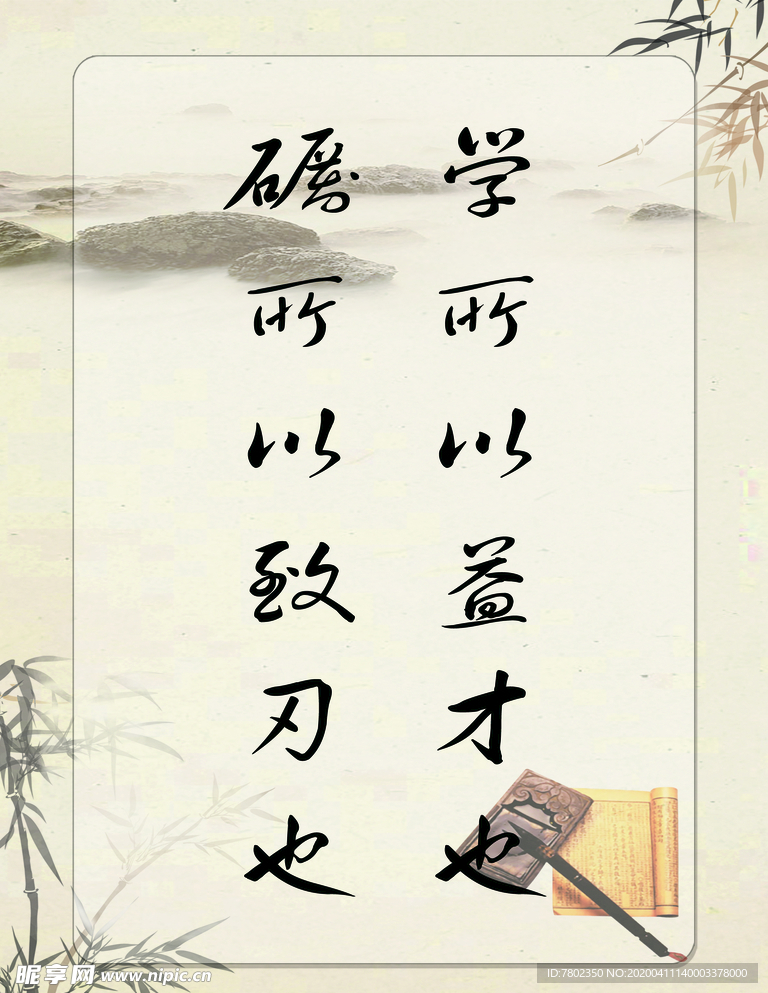 学所以益才也
砺所以致刃也
昵享网 www.nipic.cn
ID:7802350 NO:20200411140003378000